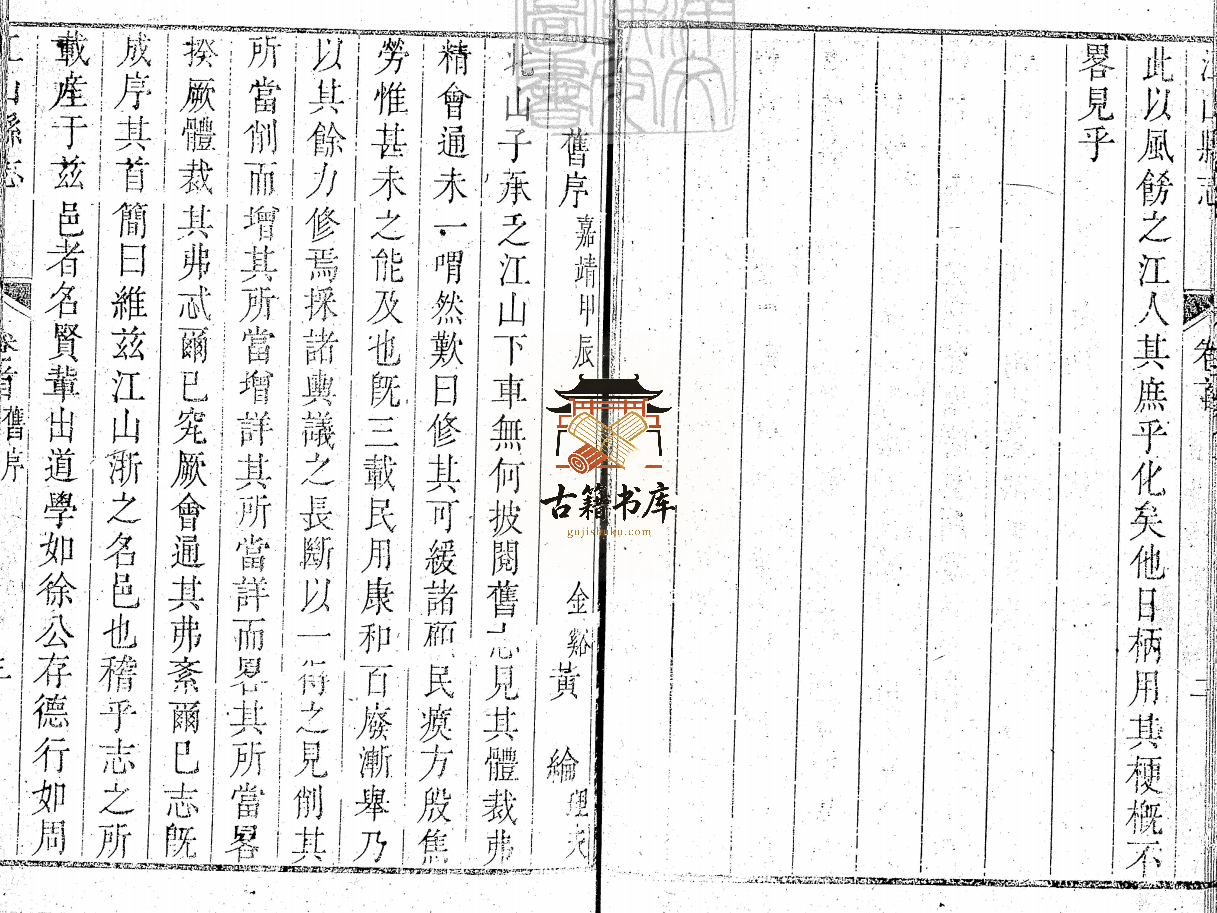 江山縣志 卷首 二
此以風餝之江人其庶乎化矣他日柄用其梗概不
畧見乎
舊序 嘉靖甲辰 金谿 黃綸
北山子承乏江山下車無何披閱舊志見其體裁弗
精會通未一喟然歎曰修其可緩諸顧民瘼方殷焦
勞惟甚未之能及也旣三載民用康和百廢漸舉乃
以其餘力修焉採諸輿議之長斷以一得之見削其
所當削而增其所當增詳其所當詳而畧其所當畧
揆厥體裁其弗忒爾已究厥會通其弗紊爾已志旣
成序其首簡曰維茲江山浙之名邑也稽乎志之所
載産于茲邑者名賢輩出道學如徐公存德行如周
江山縣志 卷首 舊序
古籍书库
gujishuku.com